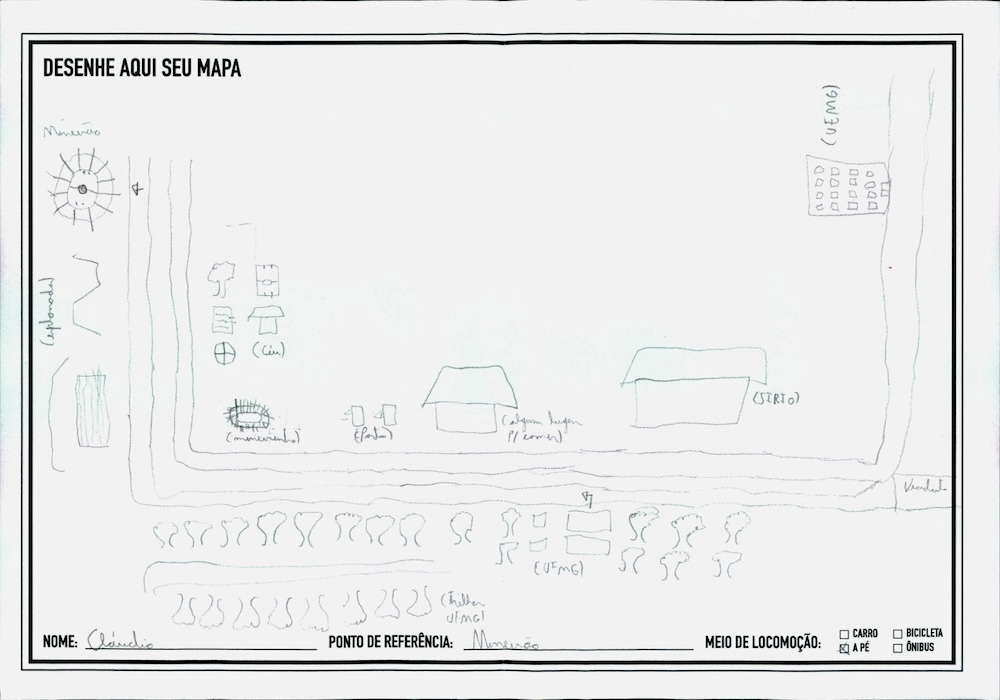 DESENHE AQUI SEU MAPA
Mineirão
(UEMG)
(esplanada)
(Céu)
(mineirinho)
(Posto)
(algum lugar
P/ comer)
(SIRIO)
Viaduto
(UFMG)
(Trilha
UFMG)
NOME: Cláudio
PONTO DE REFERÊNCIA: Mineirão
MEIO DE LOCOMOÇÃO:
CARRO
BICICLETA
A PÉ
ÔNIBUS